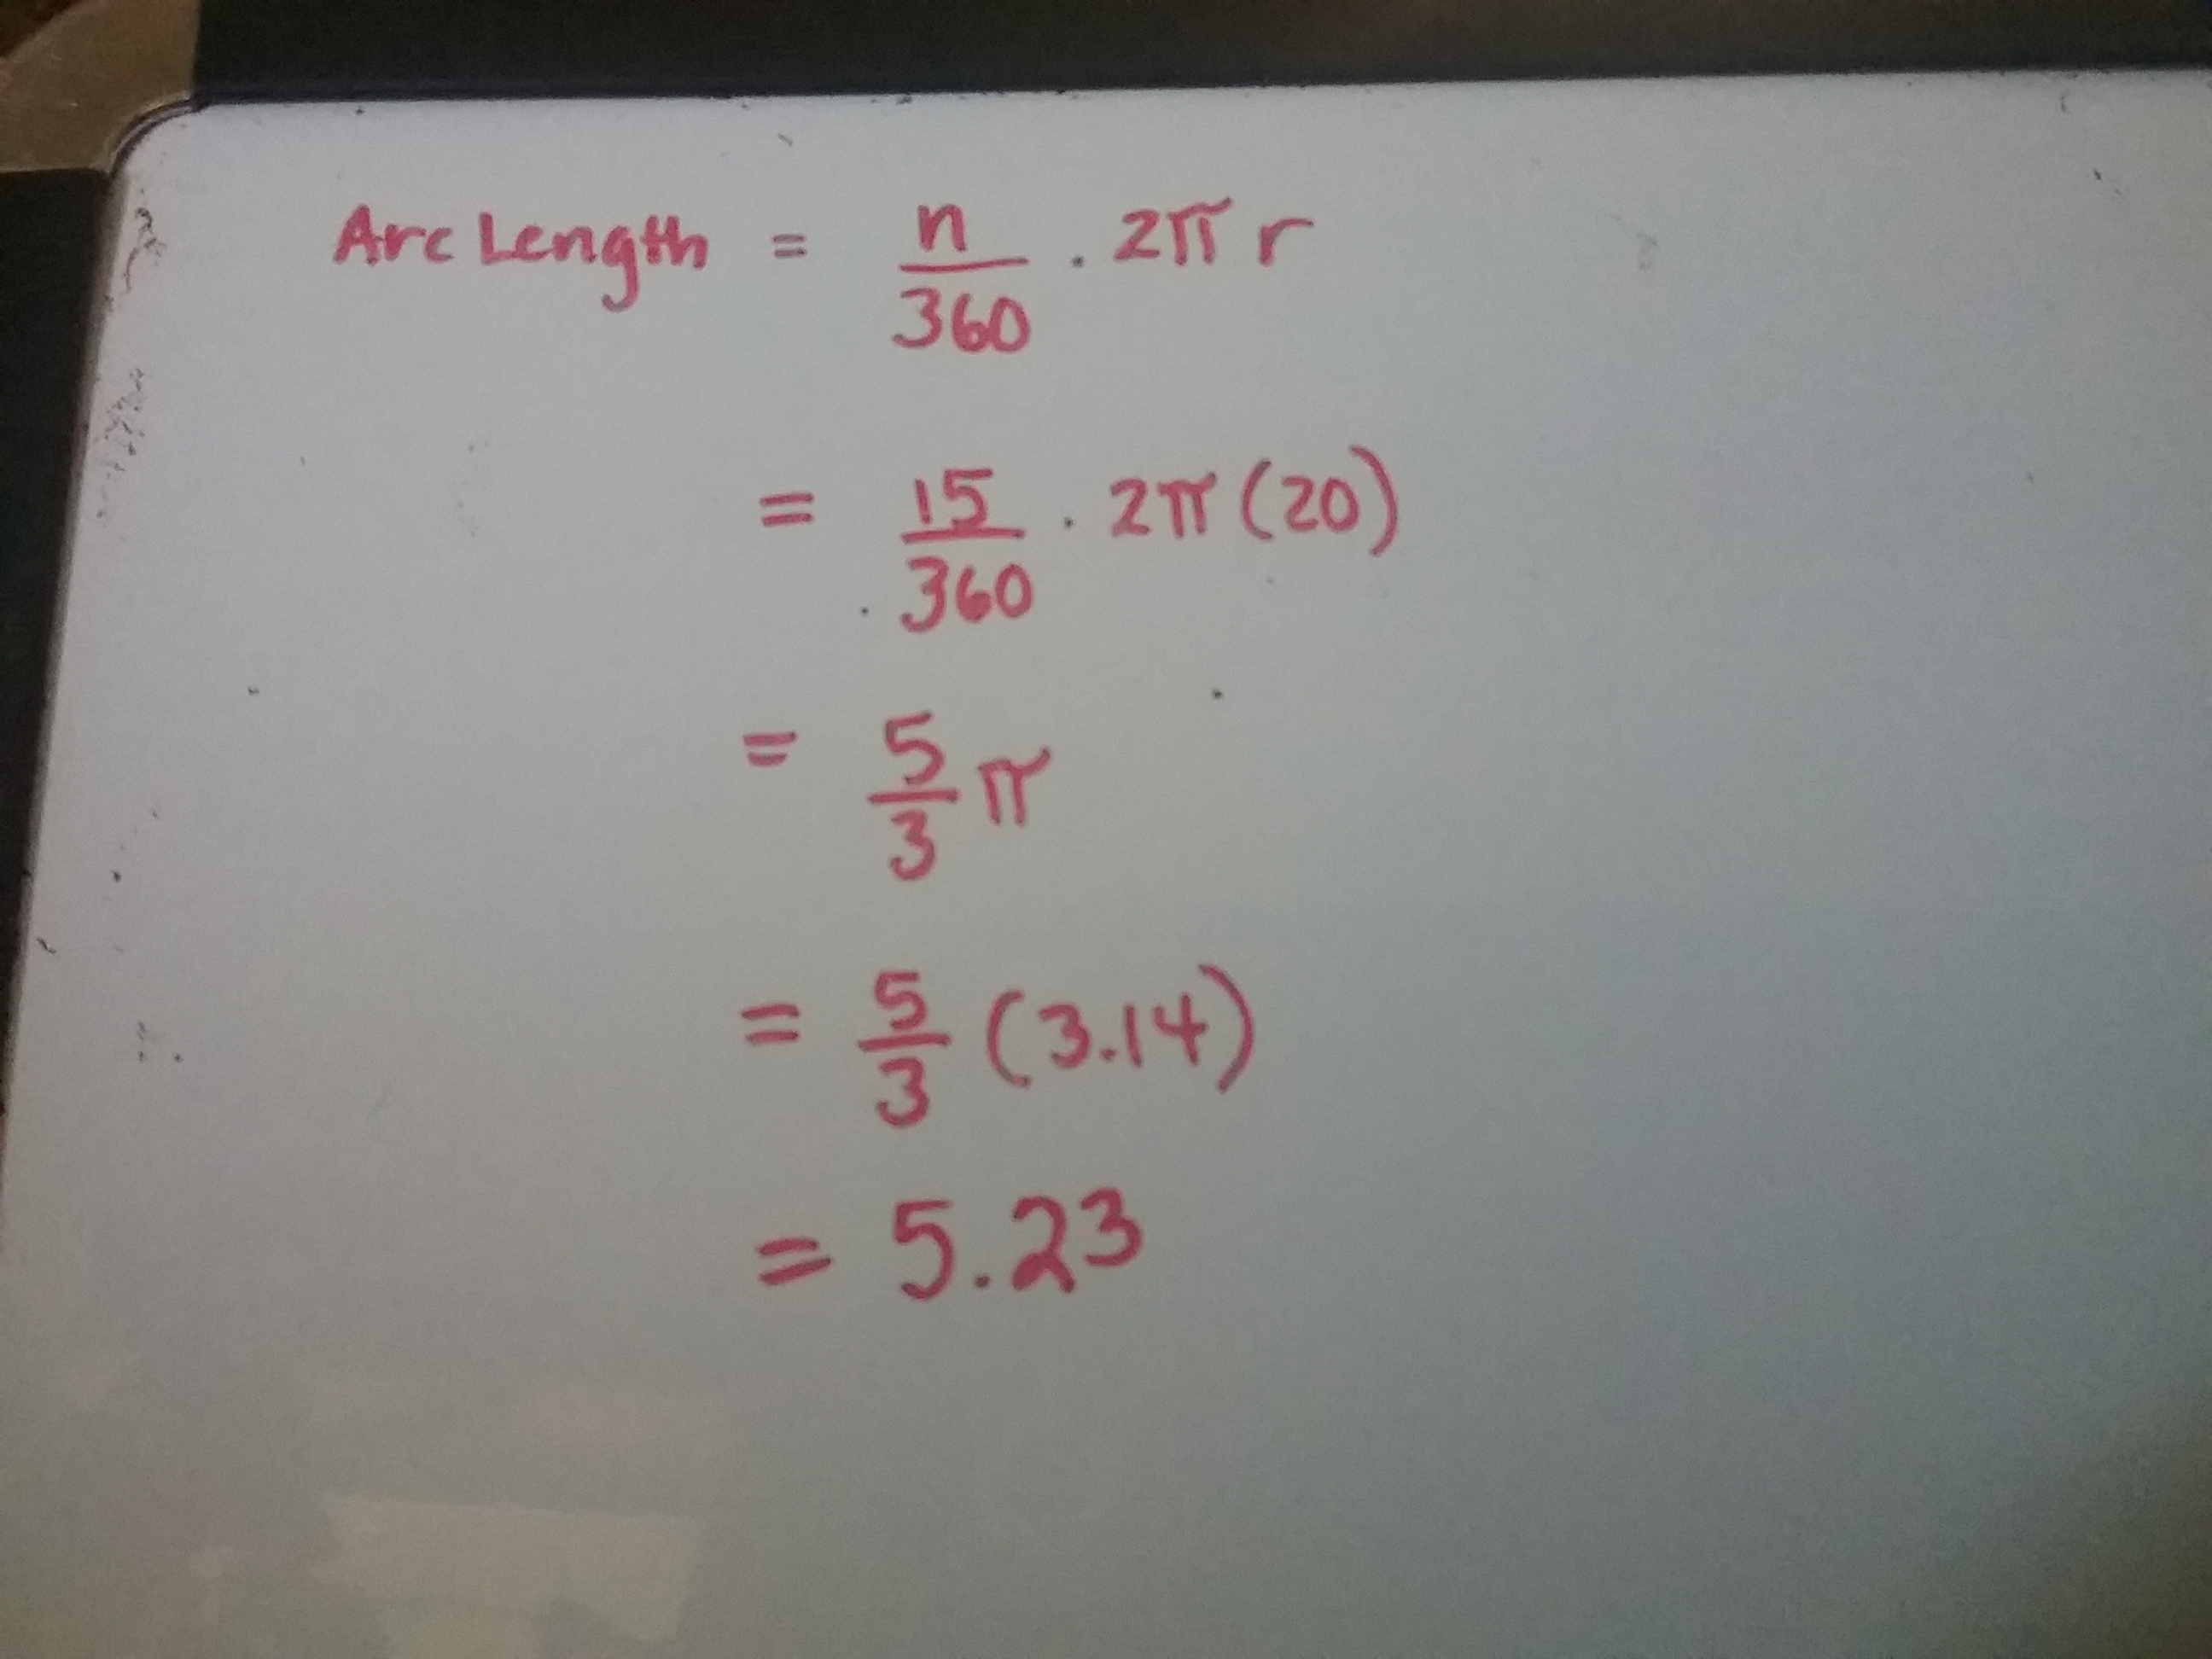 Arc Length = n/360 . 2π r
= 15/360 . 2π (20)
= 5/3 π
= 5/3 (3.14)
= 5.23